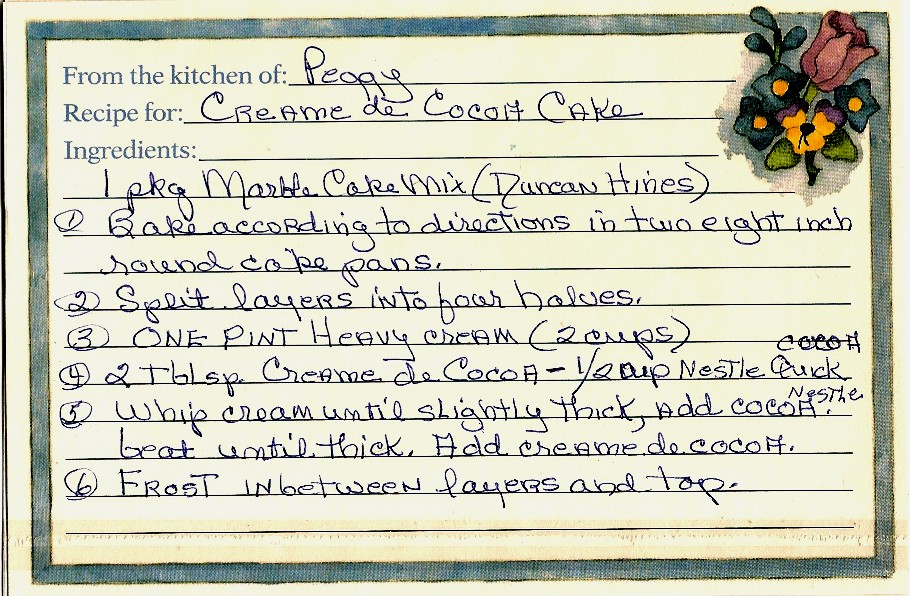 From the kitchen of: Peggy
Recipe for: Creame de Cocoa Cake
Ingredients:
1 pkg Marble Cake Mix (Duncan Hines)
① Bake according to directions in two eight inch
round cake pans.
② Split layers into four halves.
③ ONE PINT Heavy cream (2 cups)
cocoa
④ 2 Tblsp. Creame de Cocoa - 1/2 cup Nestle Quick
Nestle
⑤ Whip cream until slightly thick, Add cocoa.
beat until thick. Add creame de cocoa.
⑥ Frost inbetween layers and top.